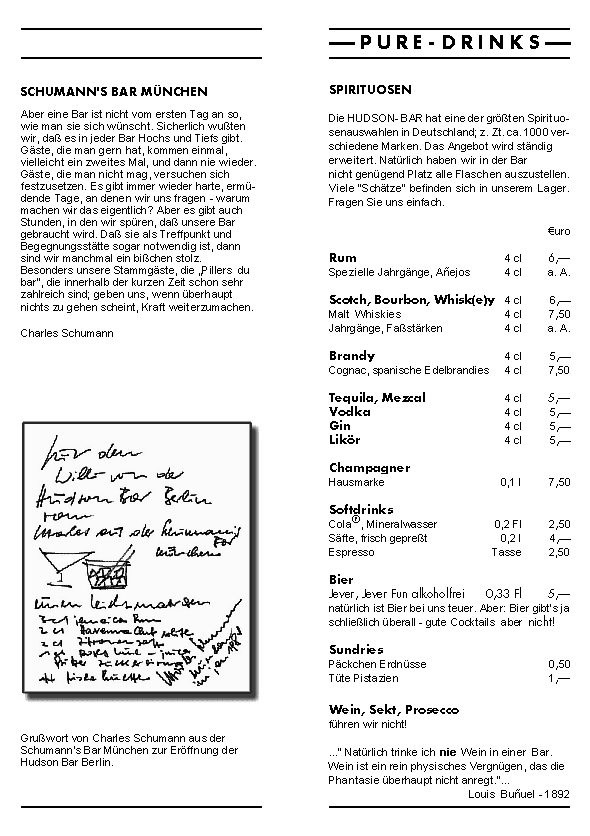 SCHUMANN'S BAR MÜNCHEN
Aber eine Bar ist nicht vom ersten Tag an so,
wie man sie sich wünscht. Sicherlich wußten
wir, daß es in jeder Bar Hochs und Tiefs gibt.
Gäste, die man gern hat, kommen einmal,
vielleicht ein zweites Mal, und dann nie wieder.
Gäste, die man nicht mag, versuchen sich
festzusetzen. Es gibt immer wieder harte, ermü-
dende Tage, an denen wir uns fragen - warum
machen wir das eigentlich? Aber es gibt auch
Stunden, in den wir spüren, daß unsere Bar
gebraucht wird. Daß sie als Treffpunkt und
Begegnungsstätte sogar notwendig ist, dann
sind wir manchmal ein bißchen stolz.
Besonders unsere Stammgäste, die „Pillers du
bar", die innerhalb der kurzen Zeit schon sehr
zahlreich sind; geben uns, wenn überhaupt
nichts zu gehen scheint, Kraft weiterzumachen.
Charles Schumann
für den
von der
Hudson Bar Berlin
vom
Charles aus der Schumann's
Bar
München
Grußwort von Charles Schumann aus der
Schumann's Bar München zur Eröffnung der
Hudson Bar Berlin.
PURE-DRINKS
SPIRITUOSEN
Die HUDSON-BAR hat eine der größten Spirituo-
senauswahlen in Deutschland; z. Zt. ca. 1000 ver-
schiedene Marken. Das Angebot wird ständig
erweitert. Natürlich haben wir in der Bar
nicht genügend Platz alle Flaschen auszustellen.
Viele "Schätze" befinden sich in unserem Lager.
Fragen Sie uns einfach.
€uro
Rum 4 cl 6,—
Spezielle Jahrgänge, Añejos 4 cl a. A.
Scotch, Bourbon, Whisk(e)y 4 cl 6,—
Malt Whiskies 4 cl 7,50
Jahrgänge, Faßstärken 4 cl a. A.
Brandy 4 cl 5,—
Cognac, spanische Edelbrandies 4 cl 7,50
Tequila, Mezcal 4 cl 5,—
Vodka 4 cl 5,—
Gin 4 cl 5,—
Likör 4 cl 5,—
Champagner
Hausmarke 0,1 l 7,50
Softdrinks
Cola®, Mineralwasser 0,2 Fl 2,50
Säfte, frisch gepreßt 0,2 l 4,—
Espresso Tasse 2,50
Bier
Jever, Jever Fun alkoholfrei 0,33 Fl 5,—
natürlich ist Bier bei uns teuer. Aber: Bier gibt's ja
schließlich überall - gute Cocktails aber nicht!
Sundries
Päckchen Erdnüsse 0,50
Tüte Pistazien 1,—
Wein, Sekt, Prosecco
führen wir nicht!
..." Natürlich trinke ich nie Wein in einer Bar.
Wein ist ein rein physisches Vergnügen, das die
Phantasie überhaupt nicht anregt."...
Louis Buñuel - 1892